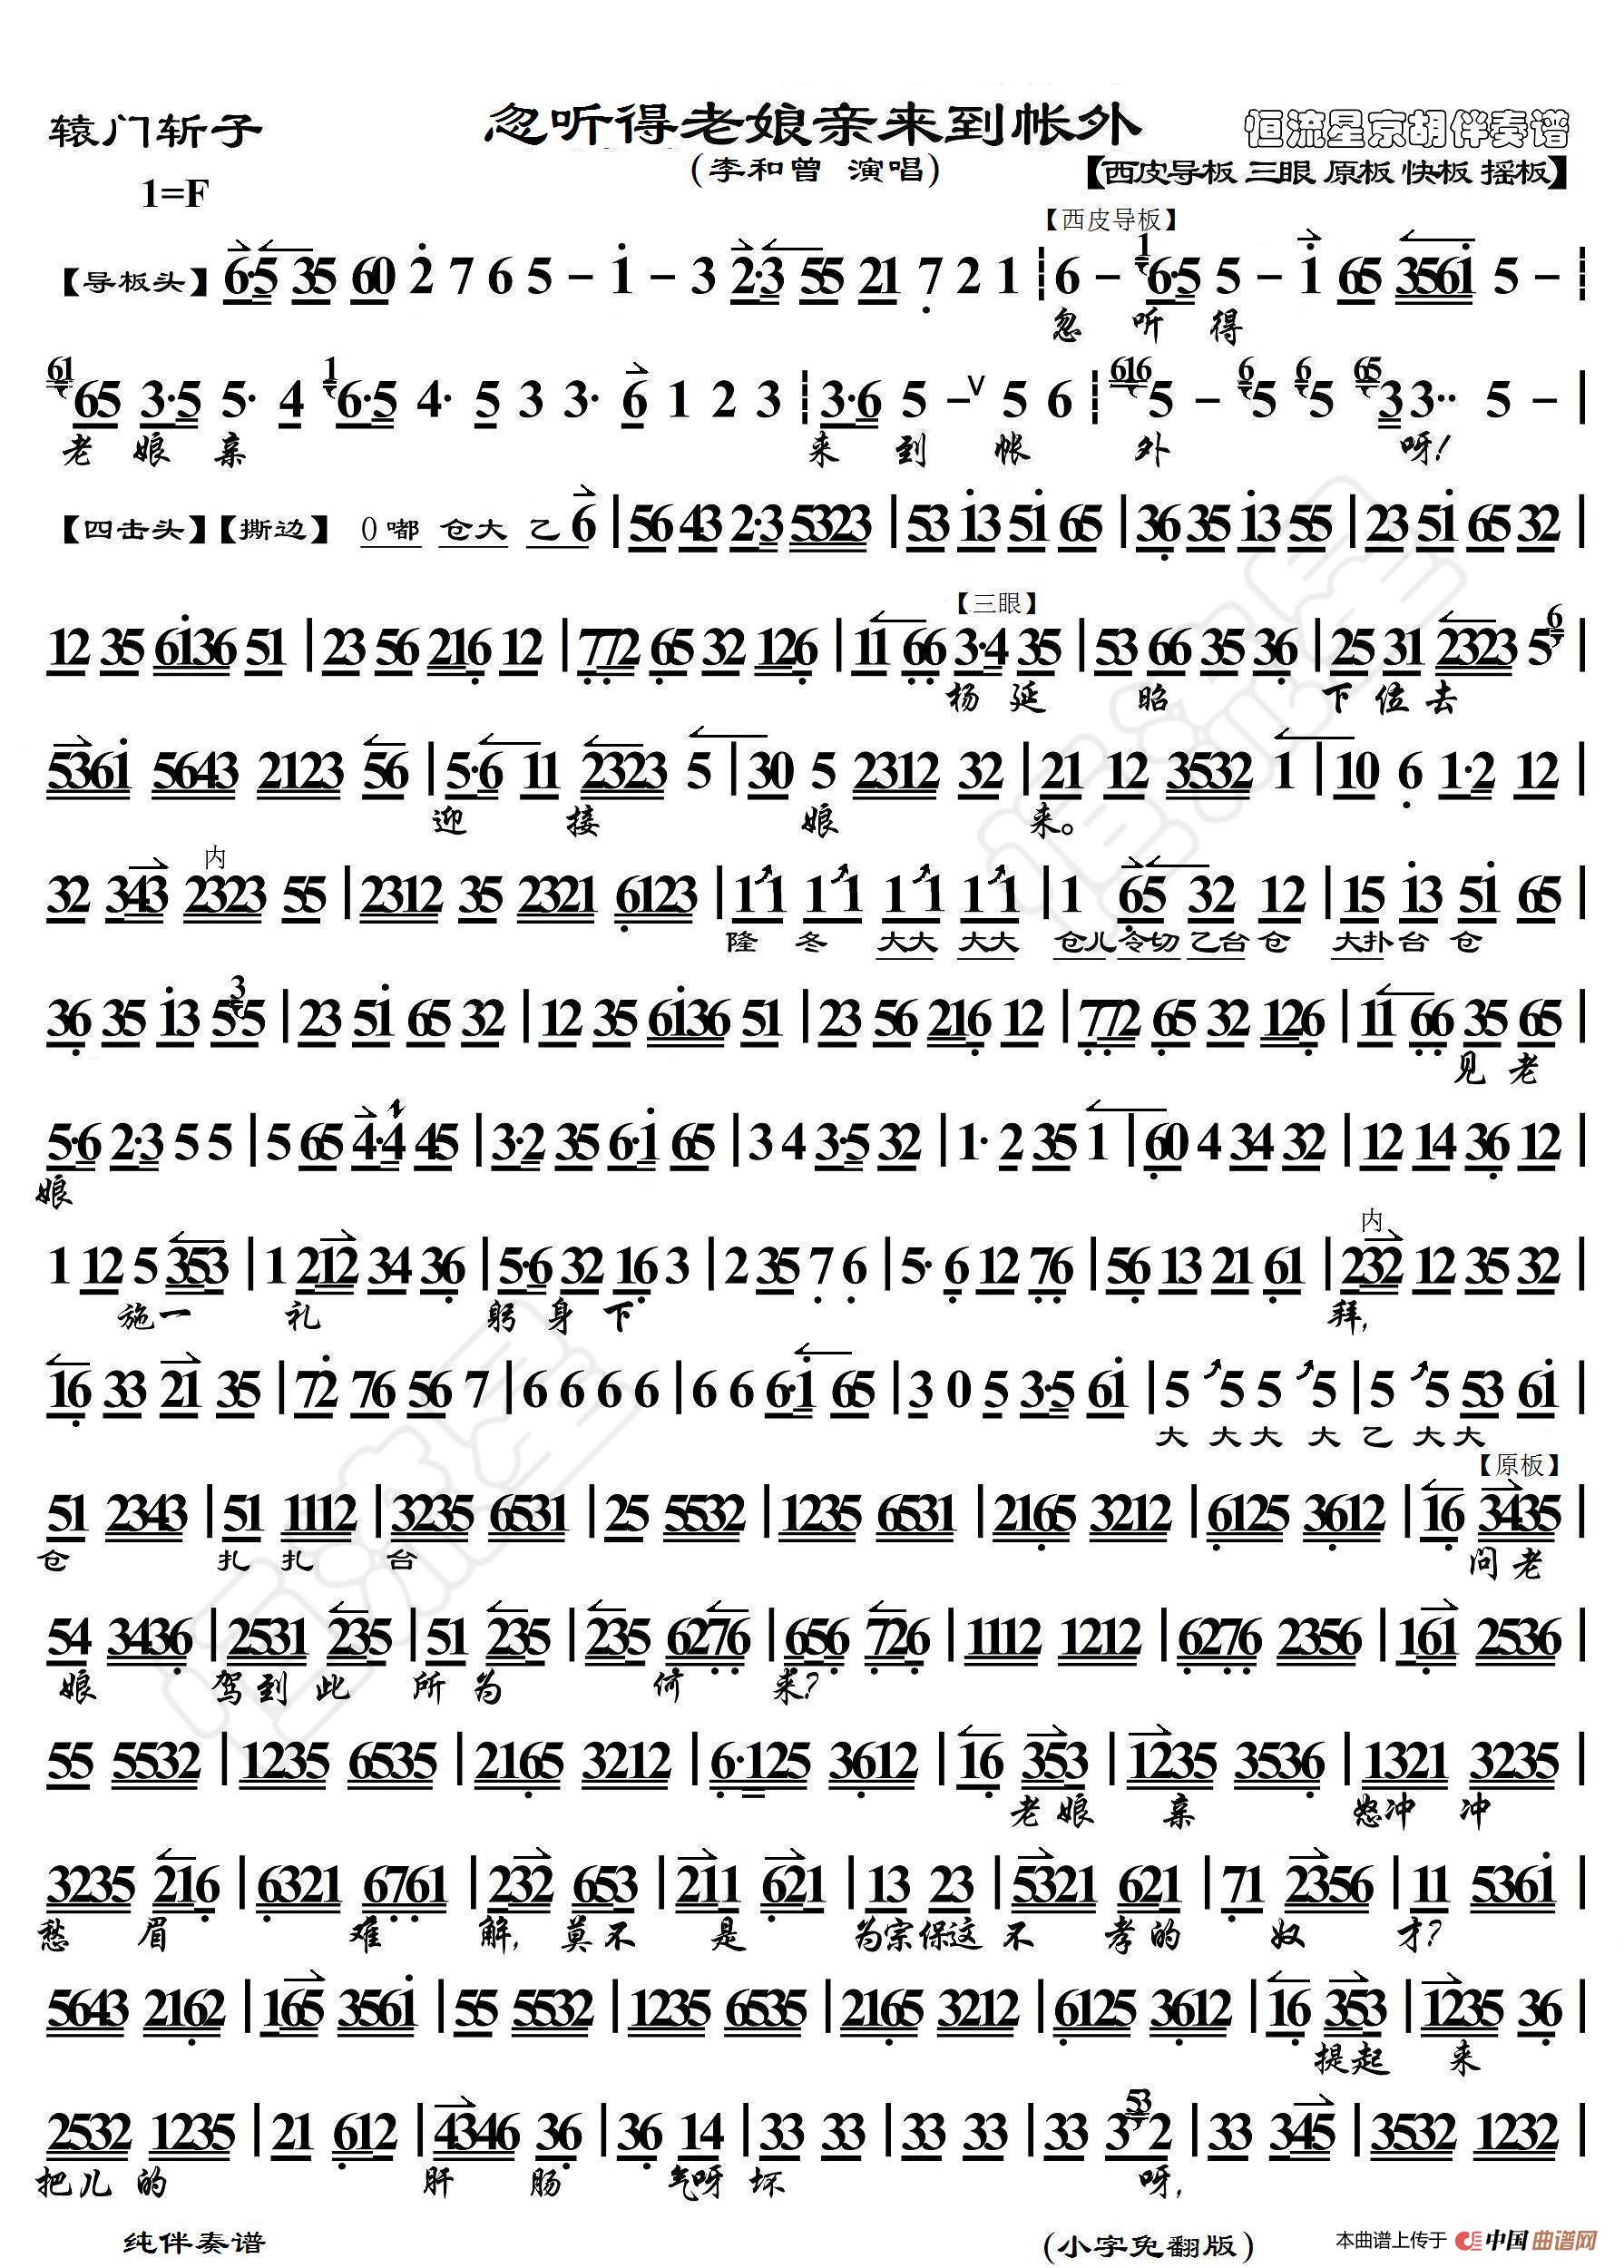 辕门斩子
忽听得老娘亲来到帐外
恒流星京胡伴奏谱
(李和曾 演唱)
【西皮导板 三眼 原板 快板 摇板】
1=F
【西皮导板】
【导板头】 6·5 35 60 2 7 6 5 - 1 - 3 2·3 55 21 7 2 1 ┆ 6 - 1 6·5 5 - 1 65 3561 5 - ┆
忽 听 得
61 65 3·5 5· 4 1 6·5 4· 5 3 3· 6 1 2 3 ┆ 3·6 5 - V 5 6 ┆ 616 5 - 6 5 6 5 65 3 3·· 5 - |
老 娘 亲 来 到 帐 外 呀!
【四击头】【撕边】 0嘟 仓大 乙6 | 56 43 2·3 5323 | 53 13 51 65 | 36 35 13 55 | 23 51 65 32 |
【三眼】
12 35 6136 51 | 23 56 216 12 | 772 65 32 126 | 11 66 3·4 35 | 53 66 35 36 | 25 31 2323 5 6 |
杨 延 昭 下 位 去
5361 5643 2123 56 | 5·6 11 2323 5 | 30 5 2312 32 | 21 12 3532 1 | 10 6 1·2 12 |
迎 接 娘 来。
内
32 343 2323 55 | 2312 35 2321 6123 | 11 11 11 11 | 1 65 32 12 | 15 13 51 65 |
隆 冬 大大 大大 仓儿 令切 乙台 仓 大扑 台 仓
36 35 13 5 3 5 | 23 51 65 32 | 12 35 6136 51 | 23 56 216 12 | 772 65 32 126 | 11 66 35 65 |
见 老
5·6 2·3 5 5 | 5 65 4·4 45 | 3·2 35 6·1 65 | 3 4 3·5 32 | 1· 2 35 1 | 60 4 34 32 | 12 14 36 12 |
娘
内
1 12 5 353 | 1 212 34 36 | 5·6 32 16 3 | 2 35 7 6 | 5· 6 12 76 | 56 13 21 61 | 232 12 35 32 |
施一 礼 躬 身 下 拜,
16 33 21 35 | 72 76 56 7 | 6 6 6 6 | 6 6 6·1 65 | 3 0 5 3·5 61 | 5 5 5 5 | 5 5 53 61 |
大 大 大 大 乙 大 大
【原板】
51 2343 | 51 1112 | 3235 6531 | 25 5532 | 1235 6531 | 2165 3212 | 6125 3612 | 16 3435 |
仓 扎 扎 台 问 老
54 3436 | 2531 235 | 51 235 | 235 6276 | 656 726 | 1112 1212 | 6276 2356 | 161 2536 |
娘 驾 到 此 所 为 何 来?
55 5532 | 1235 6535 | 2165 3212 | 6·125 3612 | 16 353 | 1235 3536 | 1321 3235 |
老 娘 亲 怒冲 冲
3235 216 | 6321 6761 | 232 653 | 211 621 | 13 23 | 5321 621 | 71 2356 | 11 5361 |
愁 眉 难 解, 莫 不 是 为宗保这 不 孝 的 奴 才?
5643 2162 | 165 3561 | 55 5532 | 1235 6535 | 2165 3212 | 6125 3612 | 16 353 | 1235 36 |
提起 来
2532 1235 | 21 612 | 4346 36 | 36 14 | 33 33 | 33 33 | 33 3 53 2 | 33 345 | 3532 1232 |
把儿 的 肝 肠 气呀 坏 呀,
纯伴奏谱
(小字免翻版)
本曲谱上传于 中国曲谱网
恒流星
恒流星